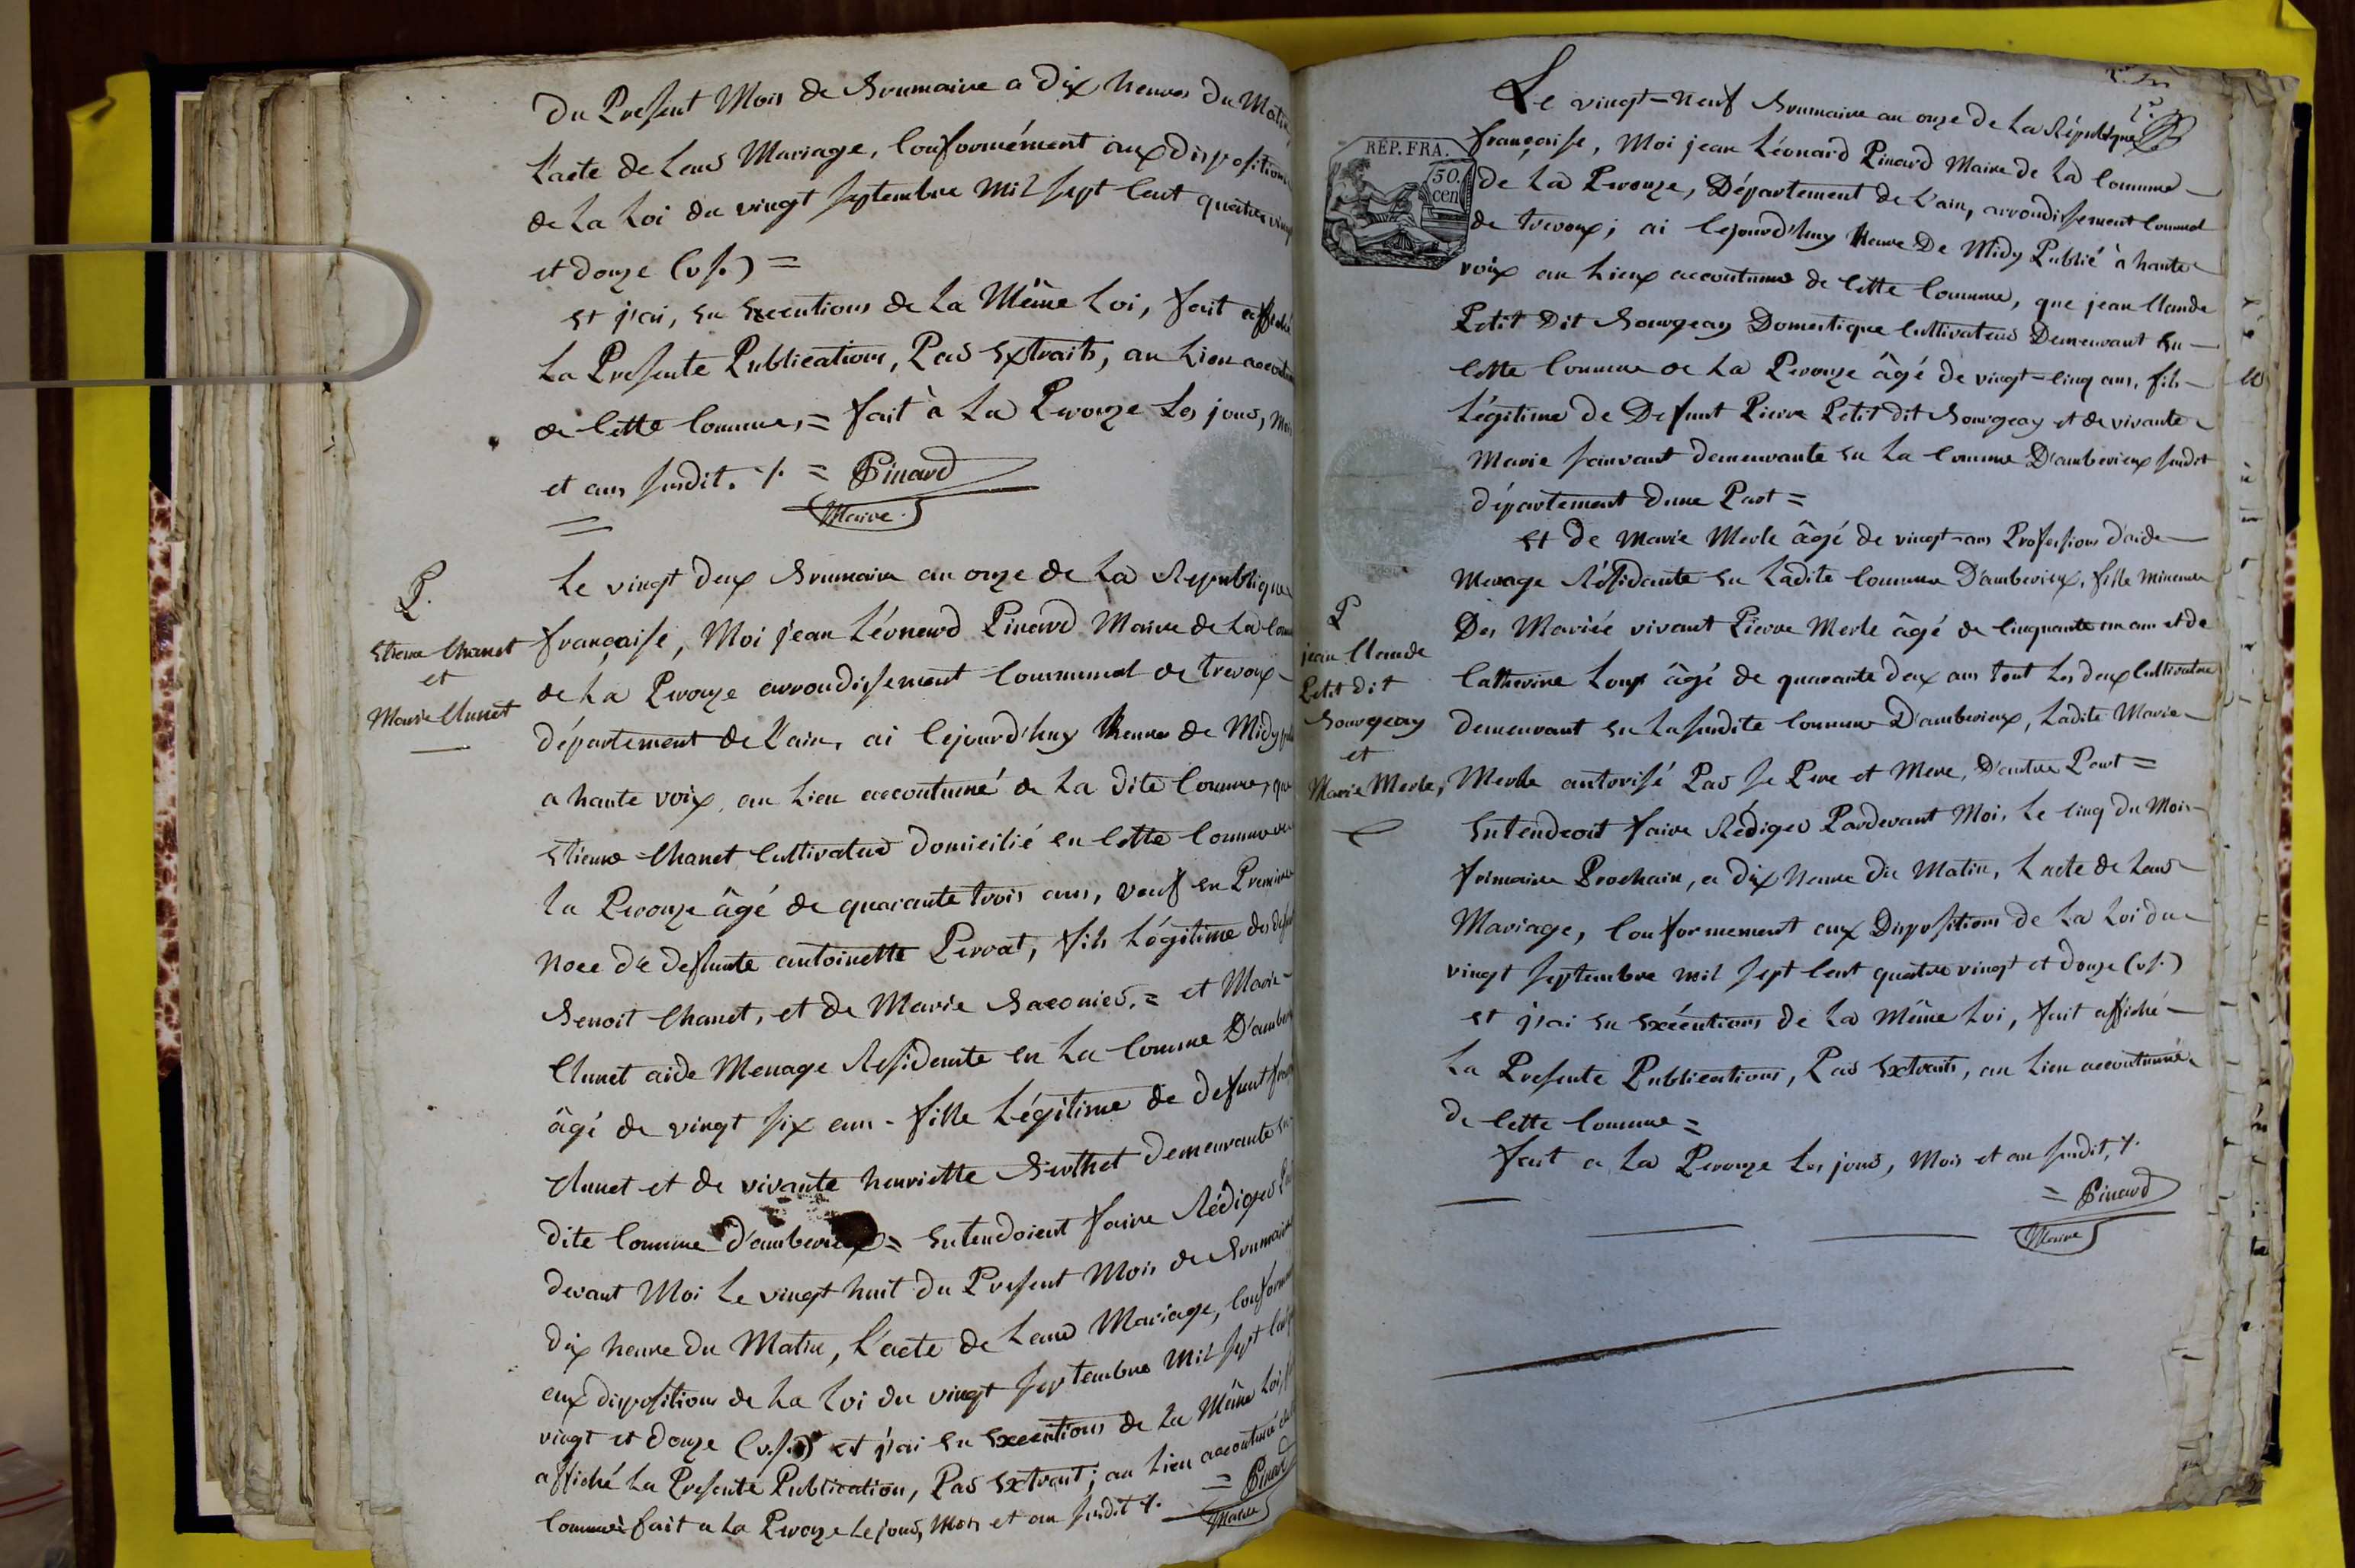 Du Present Mois de Brumaire a Dix heures Du Matin
L'acte de Leur Mariage, Conformément aux dispositions
de La Loi du vingt septembre Mil sept Cent quatre vingt
et douze (v.s.) =
Et j'ai, En Executions de La Même Loi, fait affiché
La Presente Publications, Par Extraits, au Lieu accoutumé
de Cette Commune, = fait à La Perouze Les jours, Mois
et ans susdit. ⁒ = Pinard
Maire
P.
Etienne Chanet
et
Marie Clunet
Le vingt deux Brumaire an onze de La Republique
française, Moi jean Léonard Pinard Maire de La Commune
de La Perouze arrondissement Communal de trevoux
département de L'ain, ai Cejourd'huy Heure de Midy publié
a haute voix, au Lieu accoutumé de La dite Commune, que
Etienne Chanet Cultivateur Domicilié en Cette Commune de
la Perouze âgé de quarante trois ans, veuf en Premiere
Noce de deffunte antoinette Perrat, fils Légitime des defunt
Benoit Chanet, et de Marie Baconier. = et Marie
Clunet aide Menage Residante en La Commune D'amberieux
âgé de vingt six ans - fille Légitime de defunt
Clunet et de vivante henriette Berthet Demeurante en
dite Commune D'amberieux = Entendoient faire Rédiger Par
devant Moi Le vingt huit du Present Mois de Brumaire
dix heure du Matin, L'acte de Leur Mariage, Conformement
aux dispositions de La Loi du vingt septembre Mil sept Cent quatre
vingt et douze (v.s.) et j'ai En Executions de La Même Loi,
affiché La Presente Publication, Par Extrait; au Lieu accoutumé
Commune fait a La Perouze Le jour, Mois et an susdit ⁒ = Pinard
Maire
Le vingt-neuf Brumaire an onze de La République
RÉP. FRA.
50.
cen
française, Moi jean Léonard Pinard Maire de La Commune
de La Perouze, Département de L'ain, arrondissement Communal
de trevoux; ai Cejourd'huy Heure De Midy Publié à haute
voix au Lieux accoutumé de Cette Commune, que jean Claude
Petit Dit Bourgeay Domestique Cultivateur Demeurant En
Cette Commune de La Perouze âgé de vingt-Cinq ans, fils
Légitime de Defunt Pierre Petit dit Bourgeay et de vivante
Marie demeurante En La Commune D'amberieux susdit
département dune Part =
Et De Marie Merle âgé de vingt-ans Professions d'aide
Menage Résidante En Ladite Commune D'amberieux, fille Mineure
P
jean Claude
Petit dit
Bourgeay
et
Marie Merle,
Des Mariée vivant Pierre Merle âgé de Cinquante un ans et de
Catherine Loup âgé de quarante Deux ans tout Les deux Cultivateur
demeurant En La susdite Commune D'amberieux, Ladite Marie
Merle autorisé Par se Pere et Mere, D'autre Part =
Entendroit faire Rédiger Pardevant Moi, Le Cinq du Mois
frimaire Prochain, a dix heure Du Matin, L'acte de Leur
Mariage, Conformement aux Dispositions de La Loi du
vingt septembre mil sept Cent quatre vingt et douze (v.s.)
et j'ai En Exécutions de La Même Loi, fait affiché
La Presente Publications, Par Extraits, au Lieu accoutumé
de Cette Commune =
fait a La Perouze Les jours, Mois et an susdit, ⁒
= Pinard
Maire